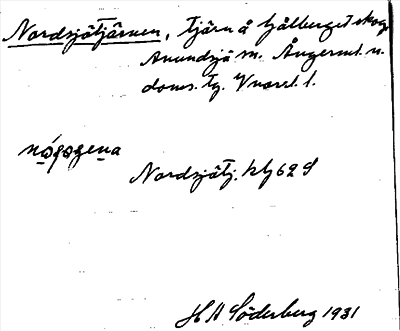 Nordsjötjärnen, tjärn å Fjälberget skog
Anundsjö sn. Ångerml. n.
doms. tg. Vnorrl. l.
Nordsjötj. kbl 62 S
H A Söderberg 1931